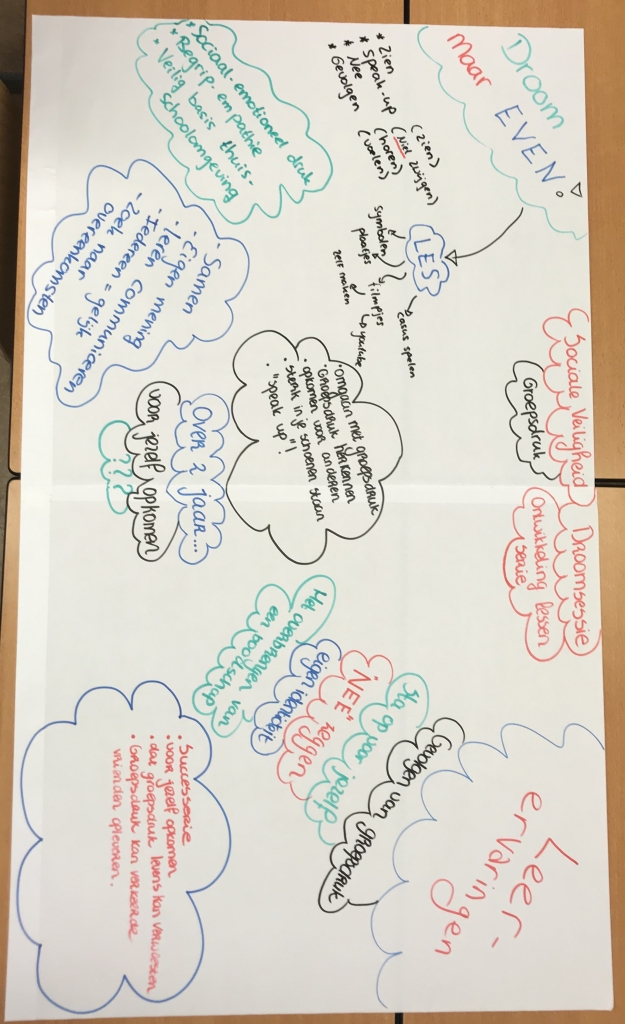 Droom
maar EVEN!
* Zien (zien)
* Speak-up (Niet zwijgen)
* Nee (horen)
* Gevolgen (voelen)
LES
symbolen
plaatjes
filmpjes
zelf maken
youtube
casus spelen
Sociale Veiligheid
Groepsdruk
Droomsessie
Ontwikkeling lessen
serie
Leer-
ervaringen
* Sociaal-emotioneel druk
* Begrip-empathie
* Veilig basis thuis-
schoolomgeving
· Samen
· Eigen mening
· leren communiceren
· Iedereen = gelijk
· Zoek naar
overeenkomsten
· omgaan met groepsdruk
· Groepsdruk herkennen
· opkomen voor anderen
· sterk in je schoenen staan
· "speak up"!
Over 2 jaar...
voor jezelf opkomen
???
Gevolgen van groepsdruk
Sta op voor jezelf
"NEE" zeggen
eigen identiteit
Het overbrengen van
een boodschap
· Successerie
· voor jezelf opkomen
· dat groepsdruk levens kan verwoesten
· Groepsdruk kan verkeerde
vrienden opleveren.